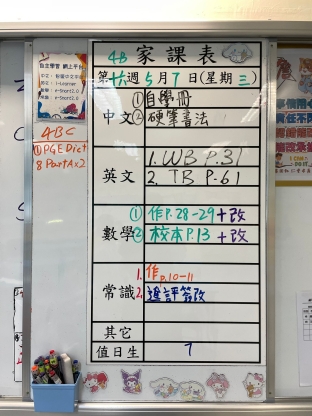 4B 家課表
第十六週5月7日(星期三)
中文 ①自學冊
②硬筆書法
英文 1. WB P.31
2. TB P.61
數學 ①作P.28-29+改
②校本P.13+改
常識 1. 作P.10-11
2. 進評簽改
其它
值日生 7
自主學習 網上平台
4BC
①PGE Dict
8 Part A x 2